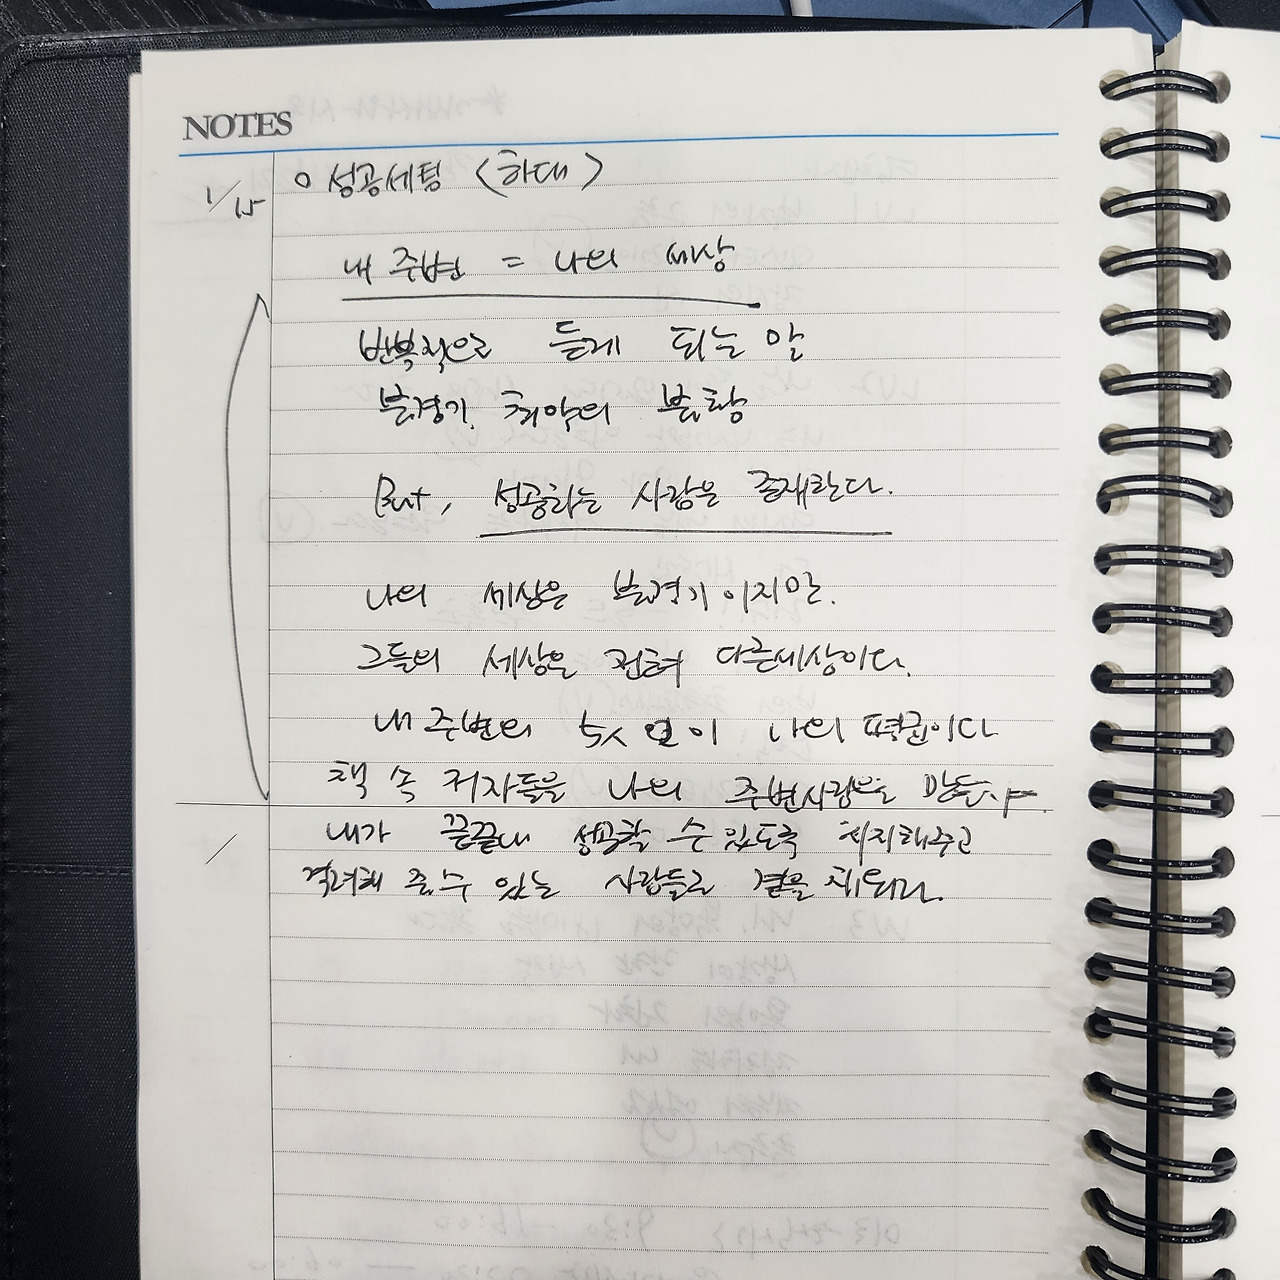 NOTES
1/15 ○ 성공세팅 <하대>
내 주변 = 나의 세상
반복적으로 듣게 되는 말
불경기, 최악의 불황
But, 성공하는 사람은 존재한다.
나의 세상은 불경기이지만.
그들의 세상은 전혀 다른세상이다.
내 주변의 5人 이 나의 평균이다
책 속 저자들을 나의 주변사람으로
내가 끝끝내 성공할 수 있도록 지지해주고
격려해 줄 수 있는 사람들로 곁을 채워라.